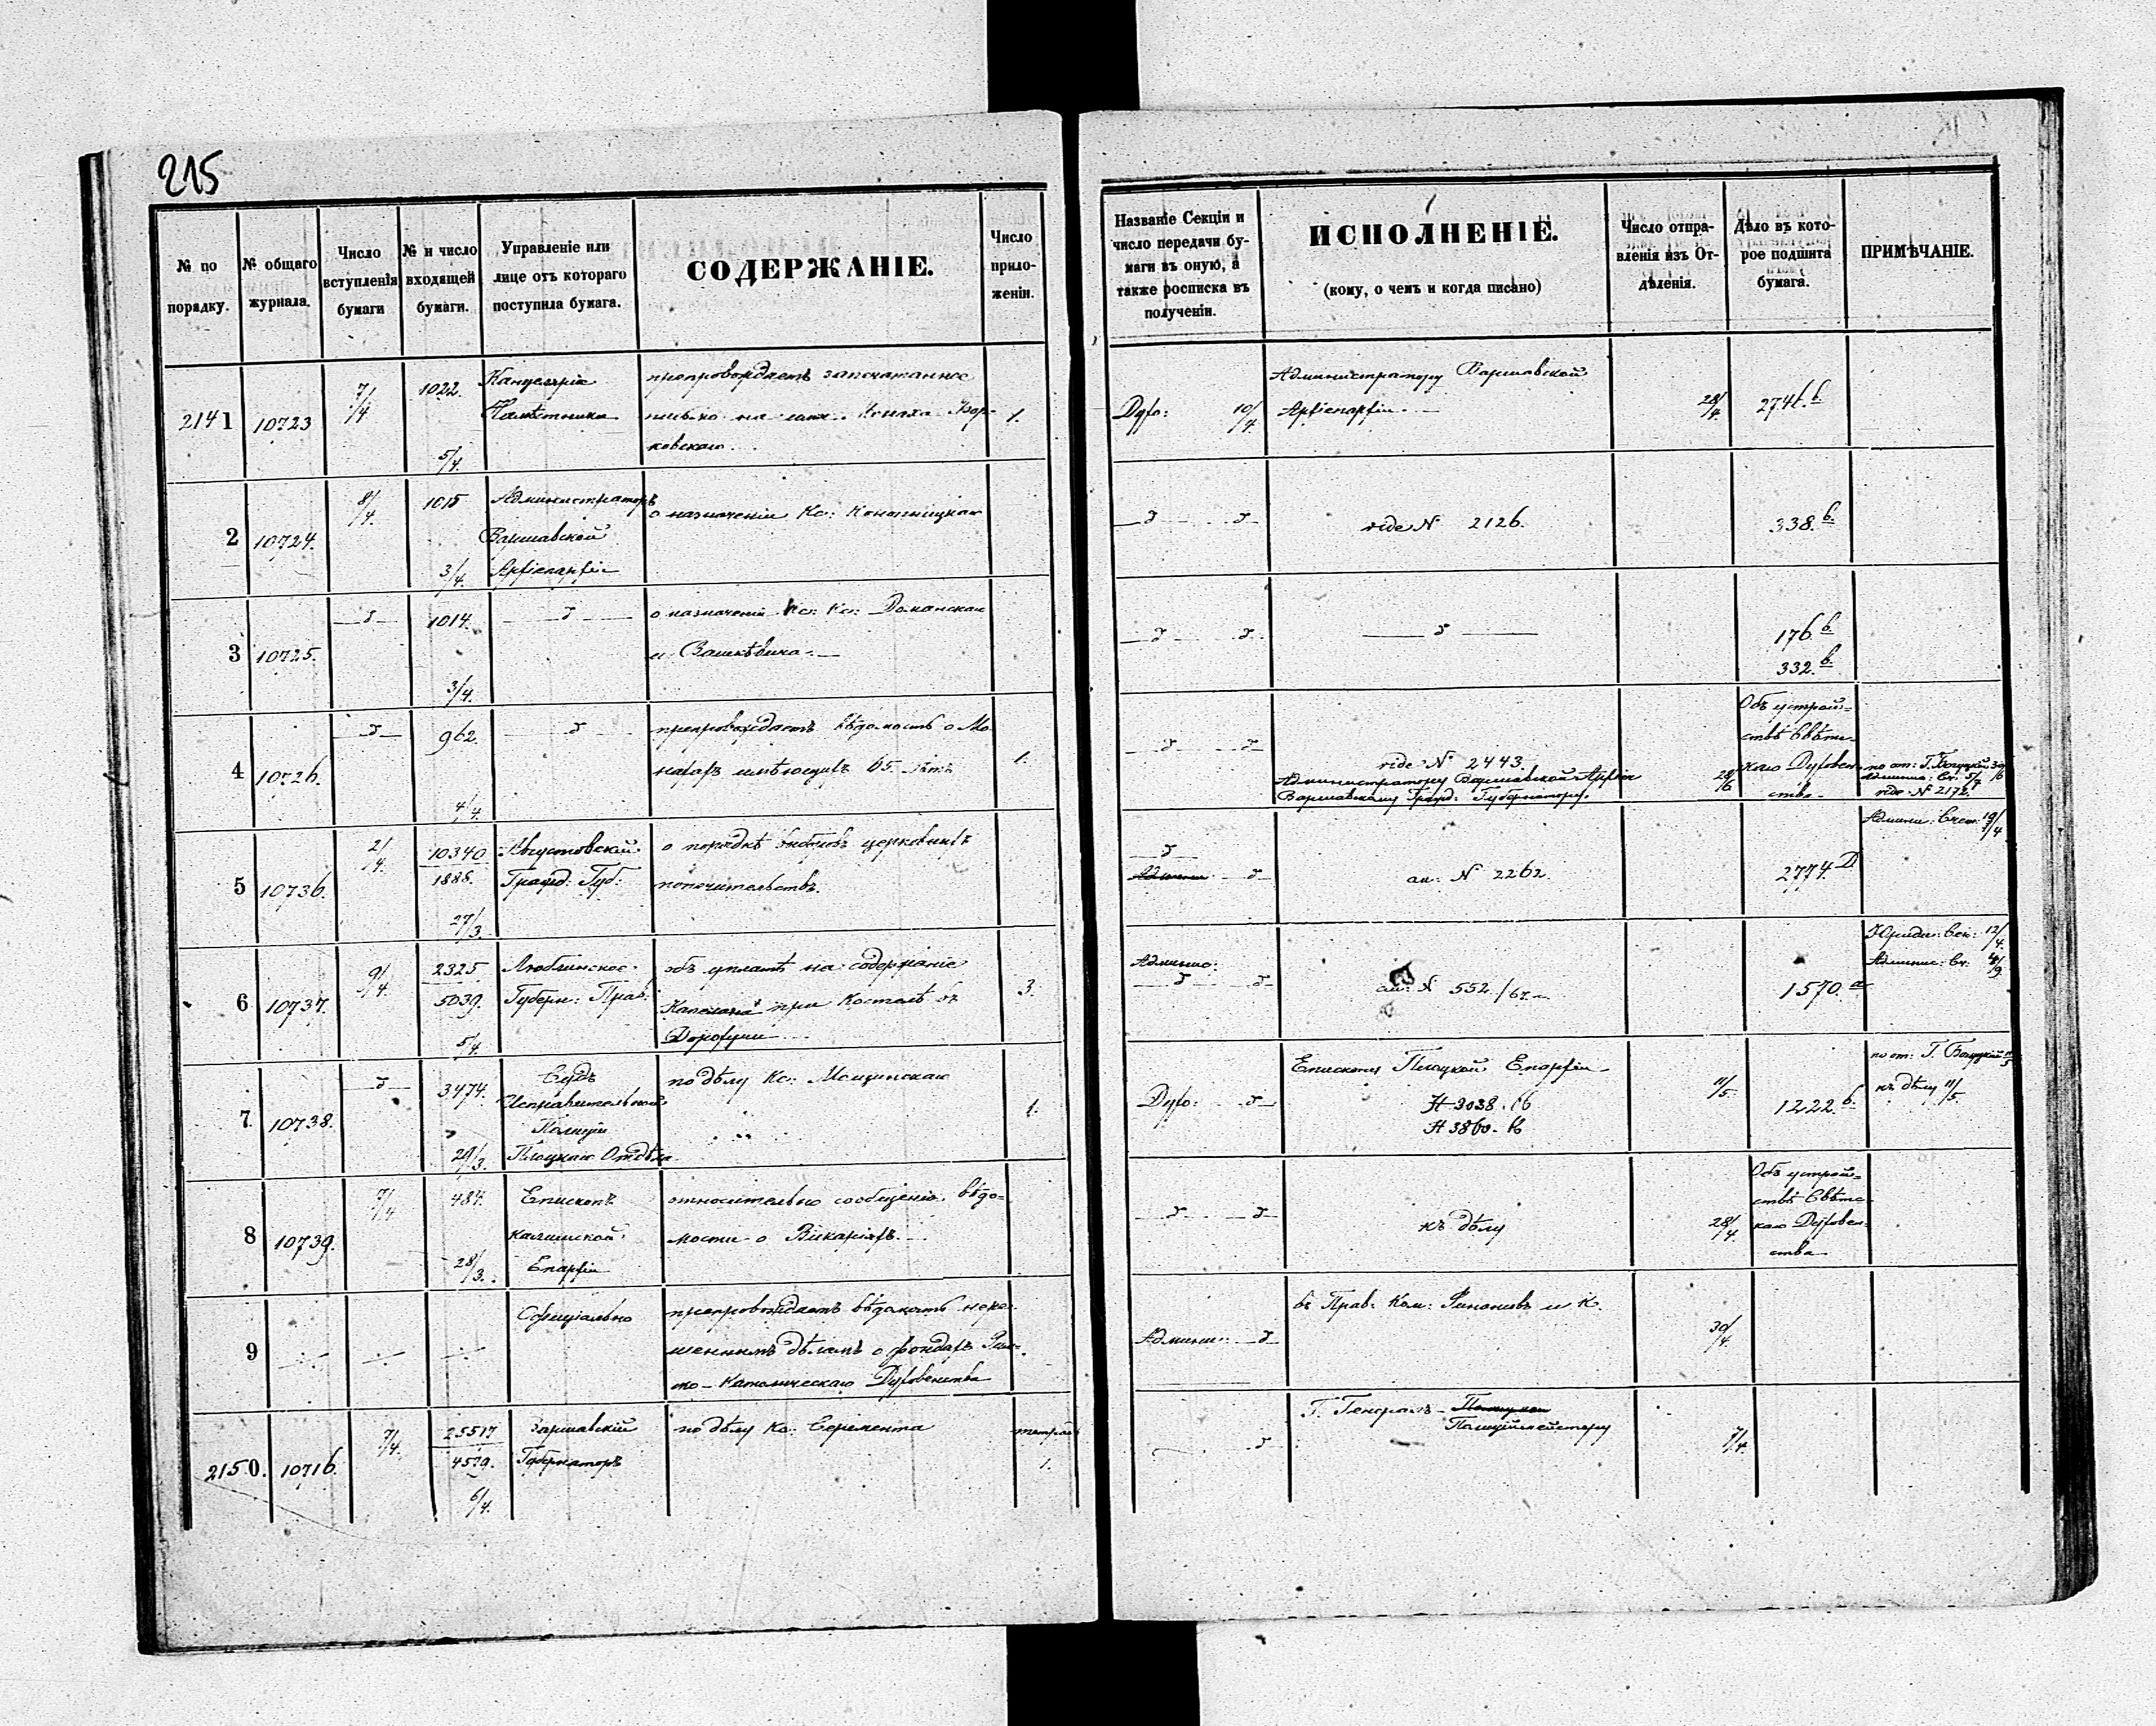 215
№ по порядку.
№ общаго журнала.
Число вступленія бумаги
№ и число входящей бумаги.
Управленіе или лице отъ котораго поступила бумага.
СОДЕРЖАНІЕ.
Число приложеніи.
Названіе Секціи и число передачи бумаги въ оную, а также росписка въ полученіи.
ИСПОЛНЕНІЕ.
(кому, о чемъ и когда писано)
Число отправленія изъ Отдѣленія.
Дѣло въ которое подшита бумага.
ПРИМѢЧАНІЕ.
2141
10723
7/4
1022.
5/4.
Канцелярія
Намѣстника
препровождаетъ запечатанное
письмо на имя Монаха
ковскаго.
1.
Духо: 10/4.
Администратору Варшавской
Архіепархіи.
28/4.
2
10724.
8/4.
1015
3/4.
Администраторъ
Варшавской
Архіепархіи
о назначеніи Кс: Конопницкаго
vide N 2126.
338. б.
3
10725.
1014.
3/4.
о назначеніи Кс: Кс: Доманскаго
и Вашкѣвича.
176. б.
332. б.
4
10726.
962.
4/4.
препровождаетъ вѣдомость о Мо
нахахъ имѣющихъ 65 лѣтъ
1.
vide N 2443.
Администратору Варшавской Архіеп
Варшавскому Гражд: Губернатору.
28/6
Объ устрой=
ствѣ Свѣтс
каго Духовен
ства.
vide N 2172.
5
10736.
2/4.
10340
1886.
27/3.
Августовскій
Гражд: Губ:
о порядкѣ выборовъ церковныхъ
попечительствъ.
ad: N 2262.
2774. D
Админи: Секц: 19/4
6
10737.
9/4.
2325
5039.
5/4.
Люблинское
Губерн: Прав:
объ уплатѣ на содержаніе
Капелана при Костелѣ въ
Дорогучи
3.
Админис:
ad: N 552./67. a.
1570. a
Юриди: Сек: 12/4.
Админис: Се:
7
10738.
3474.
29/3.
Судъ
Исправительной
Полиціи
Плоцкаго Отдѣла
по дѣлу Кс: Мсцинскаго
1.
Духо:
Епископу Плоцкой Епархіи
N 3038. 66
N 3860. 66
11/5.
1222. б.
къ дѣлу 11/5.
8
10739.
7/4
487.
28/3.
Епископъ
Калишской
Епархіи
относительно сообщенія вѣдо=
мости о Викаріяхъ.
къ дѣлу
28/4.
Объ устрой=
ствѣ Свѣтс
каго Духовен
ства
9
Офиціально
препровождаетъ вѣдомость нерѣ
шеннымъ дѣламъ о фондахъ Рим=
ско-Католическаго Духовенства
Админи:
въ Прав: Ком: Финансовъ и К.
30/4.
2150.
10716.
7/4.
25517
4579.
6/4.
Варшавскій
Губернаторъ
по дѣлу Кс: Серемента
1.
Г. Генералъ-
Полицiймейстеру
7/4.